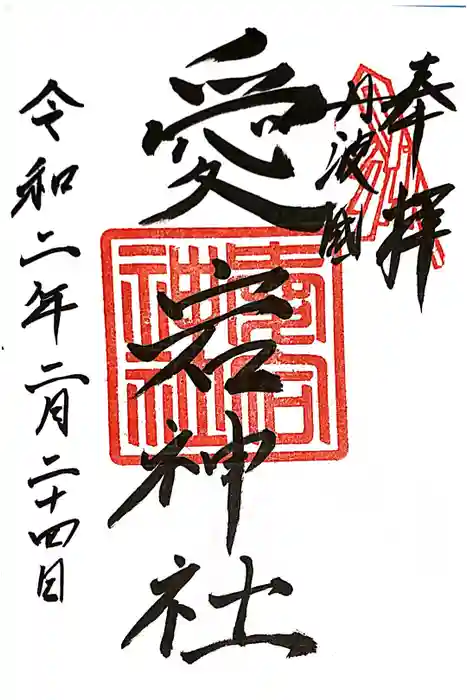 奉拝
丹波國
愛宕神社
令和二年二月二十四日
愛宕
神社